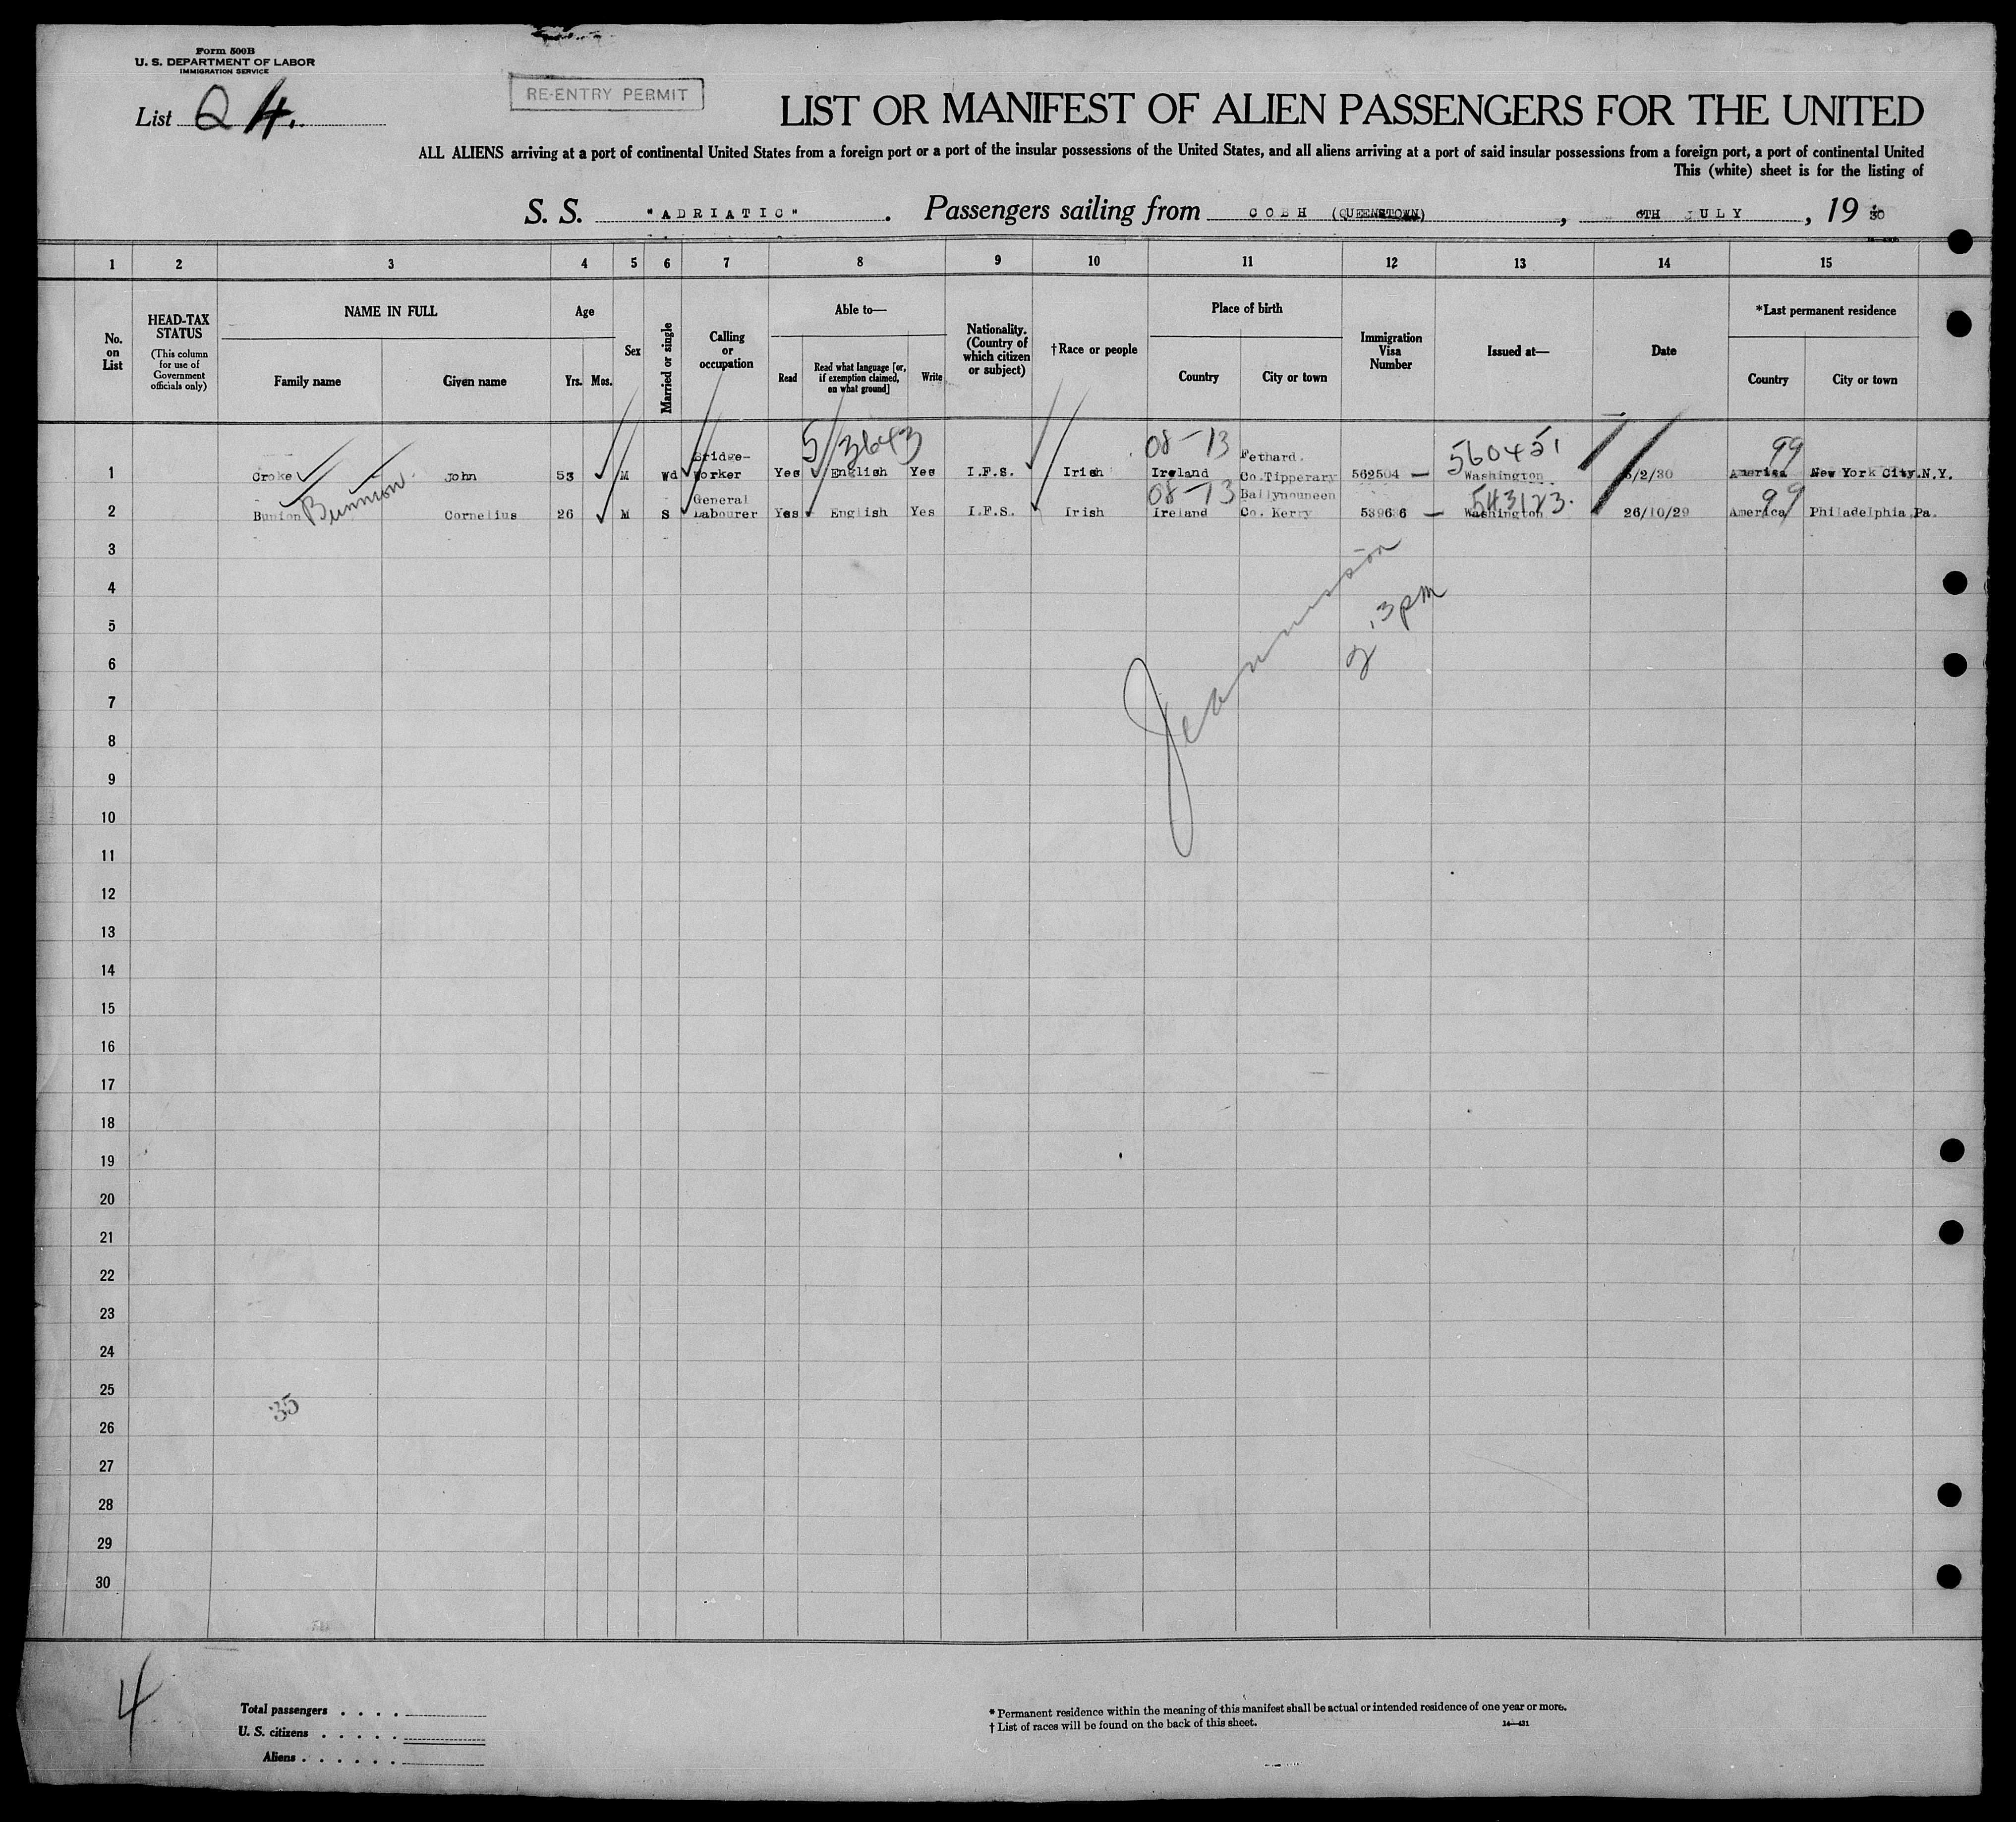 Form 500B
U. S. DEPARTMENT OF LABOR
IMMIGRATION SERVICE
List Q 4.
RE-ENTRY PERMIT
LIST OR MANIFEST OF ALIEN PASSENGERS FOR THE UNITED
ALL ALIENS arriving at a port of continental United States from a foreign port or a port of the insular possessions of the United States, and all aliens arriving at a port of said insular possessions from a foreign port, a port of continental United
This (white) sheet is for the listing of
S. S. "ADRIATIC" . Passengers sailing from COBH (QUEENSTOWN) , 6TH JULY , 19 30
1 2 3 4 5 6 7 8 9 10 11 12 13 14 15
No. on List
HEAD-TAX STATUS (This column for use of Government officials only)
NAME IN FULL
Family name Given name
Age
Yrs. Mos.
Sex
Married or single
Calling or occupation
Able to—
Read
Read what language [or, if exemption claimed, on what ground]
Write
Nationality. (Country of which citizen or subject)
†Race or people
Place of birth
Country City or town
Immigration Visa Number
Issued at—
Date
*Last permanent residence
Country City or town
5/3643 08-13 560451 99
1 Croke John 53 M Wd Bridge-Worker Yes English Yes I.F.S. Irish Ireland Fethard. Co.Tipperary 562504 — Washington /2/30 America New York City.N.Y.
Bunnion. 08-13 543123. 99
2 Bunion Cornelius 26 M S General Labourer Yes English Yes I.F.S. Irish Ireland Ballynouneen Co. Kerry 539686 — Washington 26/10/29 America Philadelphia Pa.
3
4
5
6
7
8
9
10
11
12
13
14
15
16
17
18
19
20
21
22
23
24
25
35
26
27
28
29
30
4
Total passengers
U. S. citizens
Aliens
* Permanent residence within the meaning of this manifest shall be actual or intended residence of one year or more.
† List of races will be found on the back of this sheet.
14—431